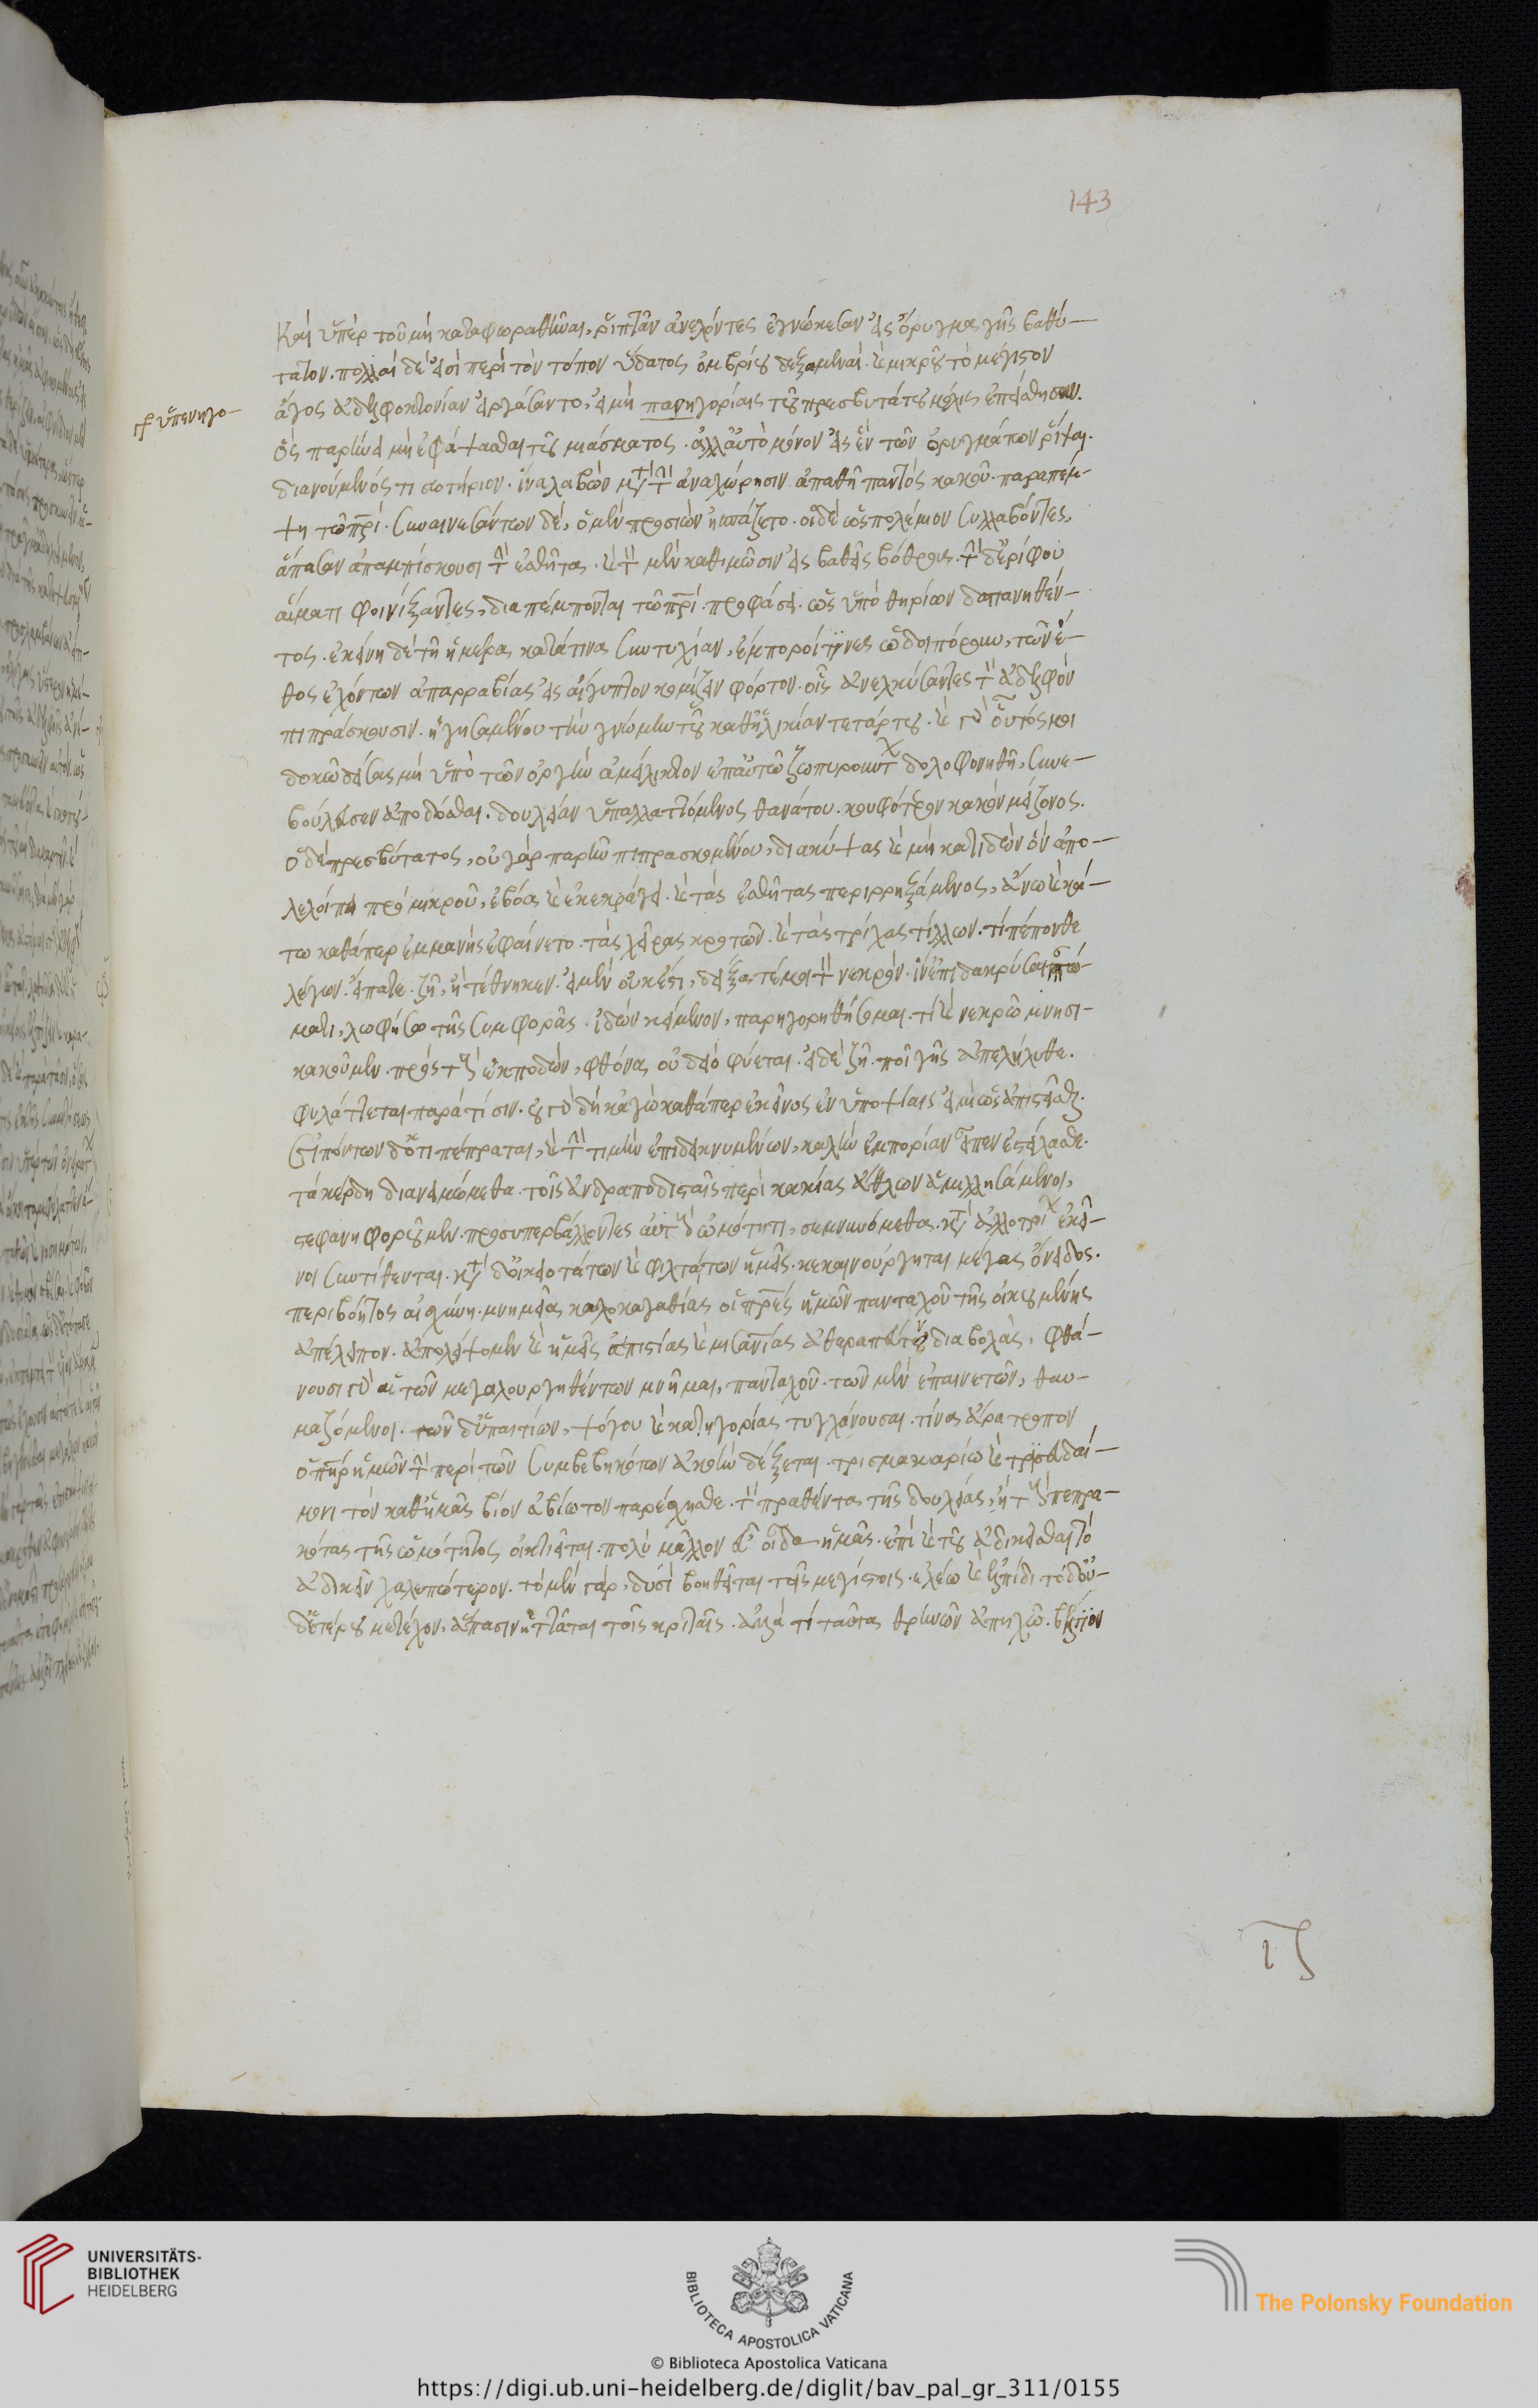 143
Καὶ ὑπὲρ τοῦ μὴ καταφωραθῆναι, ῥιπτεῖν ἀνελόντες ἐγνώκεσαν εἰς ὄρυγμα γῆς βαθύ-
τατον. πολλαὶ δέ εἰσι περὶ τὸν τόπον ὕδατος ὀμβρίου δεξαμεναί. καὶ μικροῦ τὸ μέγιστον
ἄγος ἀδελφοκτονίαν εἰργάσαντο, εἰ μὴ παρηγορίαις τοῦ πρεσβυτάτου μόλις ἐπείσθησαν.
γρ ὑπενηγο-
ὃς παρῄνει μὴ ἐφάψασθαι τοῦ μιάσματος. ἀλλ' αὐτὸ μόνον εἰς ἓν τῶν ὀρυγμάτων ῥίψαι.
διανοούμενός τι σωτήριον. ἵνα λαβὼν μετὰ τὴν ἀναχώρησιν ἀπαθῆ παντὸς κακοῦ. παραπέμ-
ψη τῶ πρί. συναινεσάντων δὲ, ὁ μὲν προσιὼν ἠσπάζετο. οἱ δὲ ὡς πολέμιον συλλαβόντες,
ἅπασαν ἀπαμπίσχουσι τὴν ἐσθῆτα. καὶ τὸν μὲν καθιμῶσιν εἰς βαθεῖς βόθρους. τὴν δὲ ἐρίφου
αἵματι φοινίξαντες, διαπέμπονται τῶ πρί. προφάσει. ὡς ὑπὸ θηρίων δαπανηθέν-
τος. ἐκείνη δὲ τῇ ἡμέρα κατά τινα συντυχίαν, ἔμποροί τινες ὡδοιπόρουν, τῶν ἔ-
θος ἐχόντων ἀπ' ἀρραβίας εἰς αἴγυπτον κομίζειν φόρτον. οἷς ἀνελκύσαντες τὸν ἀδελφὸν
πιπράσκουσιν. ἡγησαμένου τὴν γνώμην τοῦ καθ' ἡλικίαν τετάρτου. καὶ γὰρ οὗτός μοι
δοκῶ δείσας μὴ ὑπὸ τῶν ὀργὴν ἀμείλικτον ἐπ' αὐτῶ ζωπυρούντ δολοφονηθῆ, συνε-
βούλευσεν ἀποδόσθαι. δουλείαν ὑπαλλαττόμενος θανάτου. κουφότερον κακὸν μείζονος.
ὁ δὲ πρεσβύτατος, οὐ γὰρ παρῆν πιπρασκομένου, διακύψας καὶ μὴ κατιδὼν ὃν ἀπο-
λελοίπει πρὸ μικροῦ, ἐβόα καὶ ἐκεκράγει. καὶ τὰς ἐσθῆτας περιρρηξάμενος, ἄνω καὶ κά-
τω καθάπερ ἐμμανὴς ἐφαίνετο. τὰς χεῖρας κροτῶν. καὶ τὰς τρίχας τίλλων. τί πέπονθε
λέγων. εἴπατε. ζῆ, ἢ τέθνηκεν. εἰ μὲν οὐκ ἔστι, δείξατέ μοι τὸν νεκρόν. ἵν' ἐπιδακρύσας τῶ πτώ-
ματι, λωφήσω τῆς συμφορᾶς. ἰδὼν κείμενον, παρηγορηθήσομαι. τί καὶ νεκρῶ μνησι-
κακοῦμεν. πρὸς τοὺς ἐκποδὼν, φθόνος οὐδεὶς φύεται. εἰ δὲ ζῆ. ποῖ γῆς ἀπελήλυθε.
φυλάττεται παρά τίσιν. οὐ γὰρ δὴ κἀγὼ καθάπερ ἐκεῖνος ἐν ὑποψίαις εἰμὶ ὡς ἀπιστεῖσθαι.
εἰπόντων δ' ὅτι πέπραται, καὶ τὴν τιμὴν ἐπιδεικνυμένων, καλὴν ἐμπορίαν εἶπεν ἐστείλασθε.
τὰ κέρδη διανειμώμεθα. τοῖς ἀνδραποδισταῖς περὶ κακίας ἄθλων ἁμιλλησάμενοι,
στεφανηφορῶμεν. προσυπερβάλλοντες αὐτοὺς ὠμότητι, σεμνυνώμεθα. κατὰ ἀλλοτρί ἐκεῖ-
νοι συντίθενται. κατὰ δ' οἰκειοτάτων καὶ φιλτάτων ἡμεῖς. κεκαινούργηται μέγας ὄνειδος.
περιβόητος αἰσχύνη. μνημεῖα καλοκαγαθίας οἱ πρες ἡμῶν πανταχοῦ τῆς οἰκουμένης
ἀπέλειπον. ἀπολείψομεν καὶ ἡμεῖς ἀπιστίας καὶ μισανίας ἀθεραπεύτους διαβολάς. φθά-
νουσι γὰρ αἱ τῶν μεγαλουργηθέντων μνῆμαι, πανταχοῦ. τῶν μὲν ἐπαινετῶν, θαυ-
μαζόμεναι. τῶν δ' ὑπαιτίων, ψόγου καὶ κατηγορίας τυγχάνουσαι. τίνα ἄρα τρόπον
ὁ πὴρ ἡμῶν τὴν περὶ τῶν συμβεβηκότων ἀκοὴν δέξεται. τρισμακαρίω καὶ τρισευδαί-
μονι τὸν καθ' ἡμᾶς βίον ἀβίωτον παρέσχησθε. τὸν πραθέντα τῆς δουλείας, ἢ τοὺς πεπρα-
κότας τῆς ὠμότητος οἰκτιεῖται. πολὺ μᾶλλον εὖ οἶδα ἡμᾶς. ἐπεὶ καὶ τοῦ ἀδικεῖσθαι τὸ
ἀδικεῖν χαλεπώτερον. τὸ μὲν γὰρ, δυσὶ βοηθεῖται τοῖς μεγίστοις. ἐλέω καὶ ἐλπίδι. τὸ δ' οὐ-
δετέρου μετέχον, ἅπασιν ἡττᾶται τοῖς κριταῖς. ἀλλὰ τί ταῦτα θρηνῶν ἀπηχῶ. βέλτιον
ιζ
UNIVERSITÄTS-
BIBLIOTHEK
HEIDELBERG
BIBLIOTECA APOSTOLICA VATICANA
The Polonsky Foundation
© Biblioteca Apostolica Vaticana
https://digi.ub.uni-heidelberg.de/diglit/bav_pal_gr_311/0155